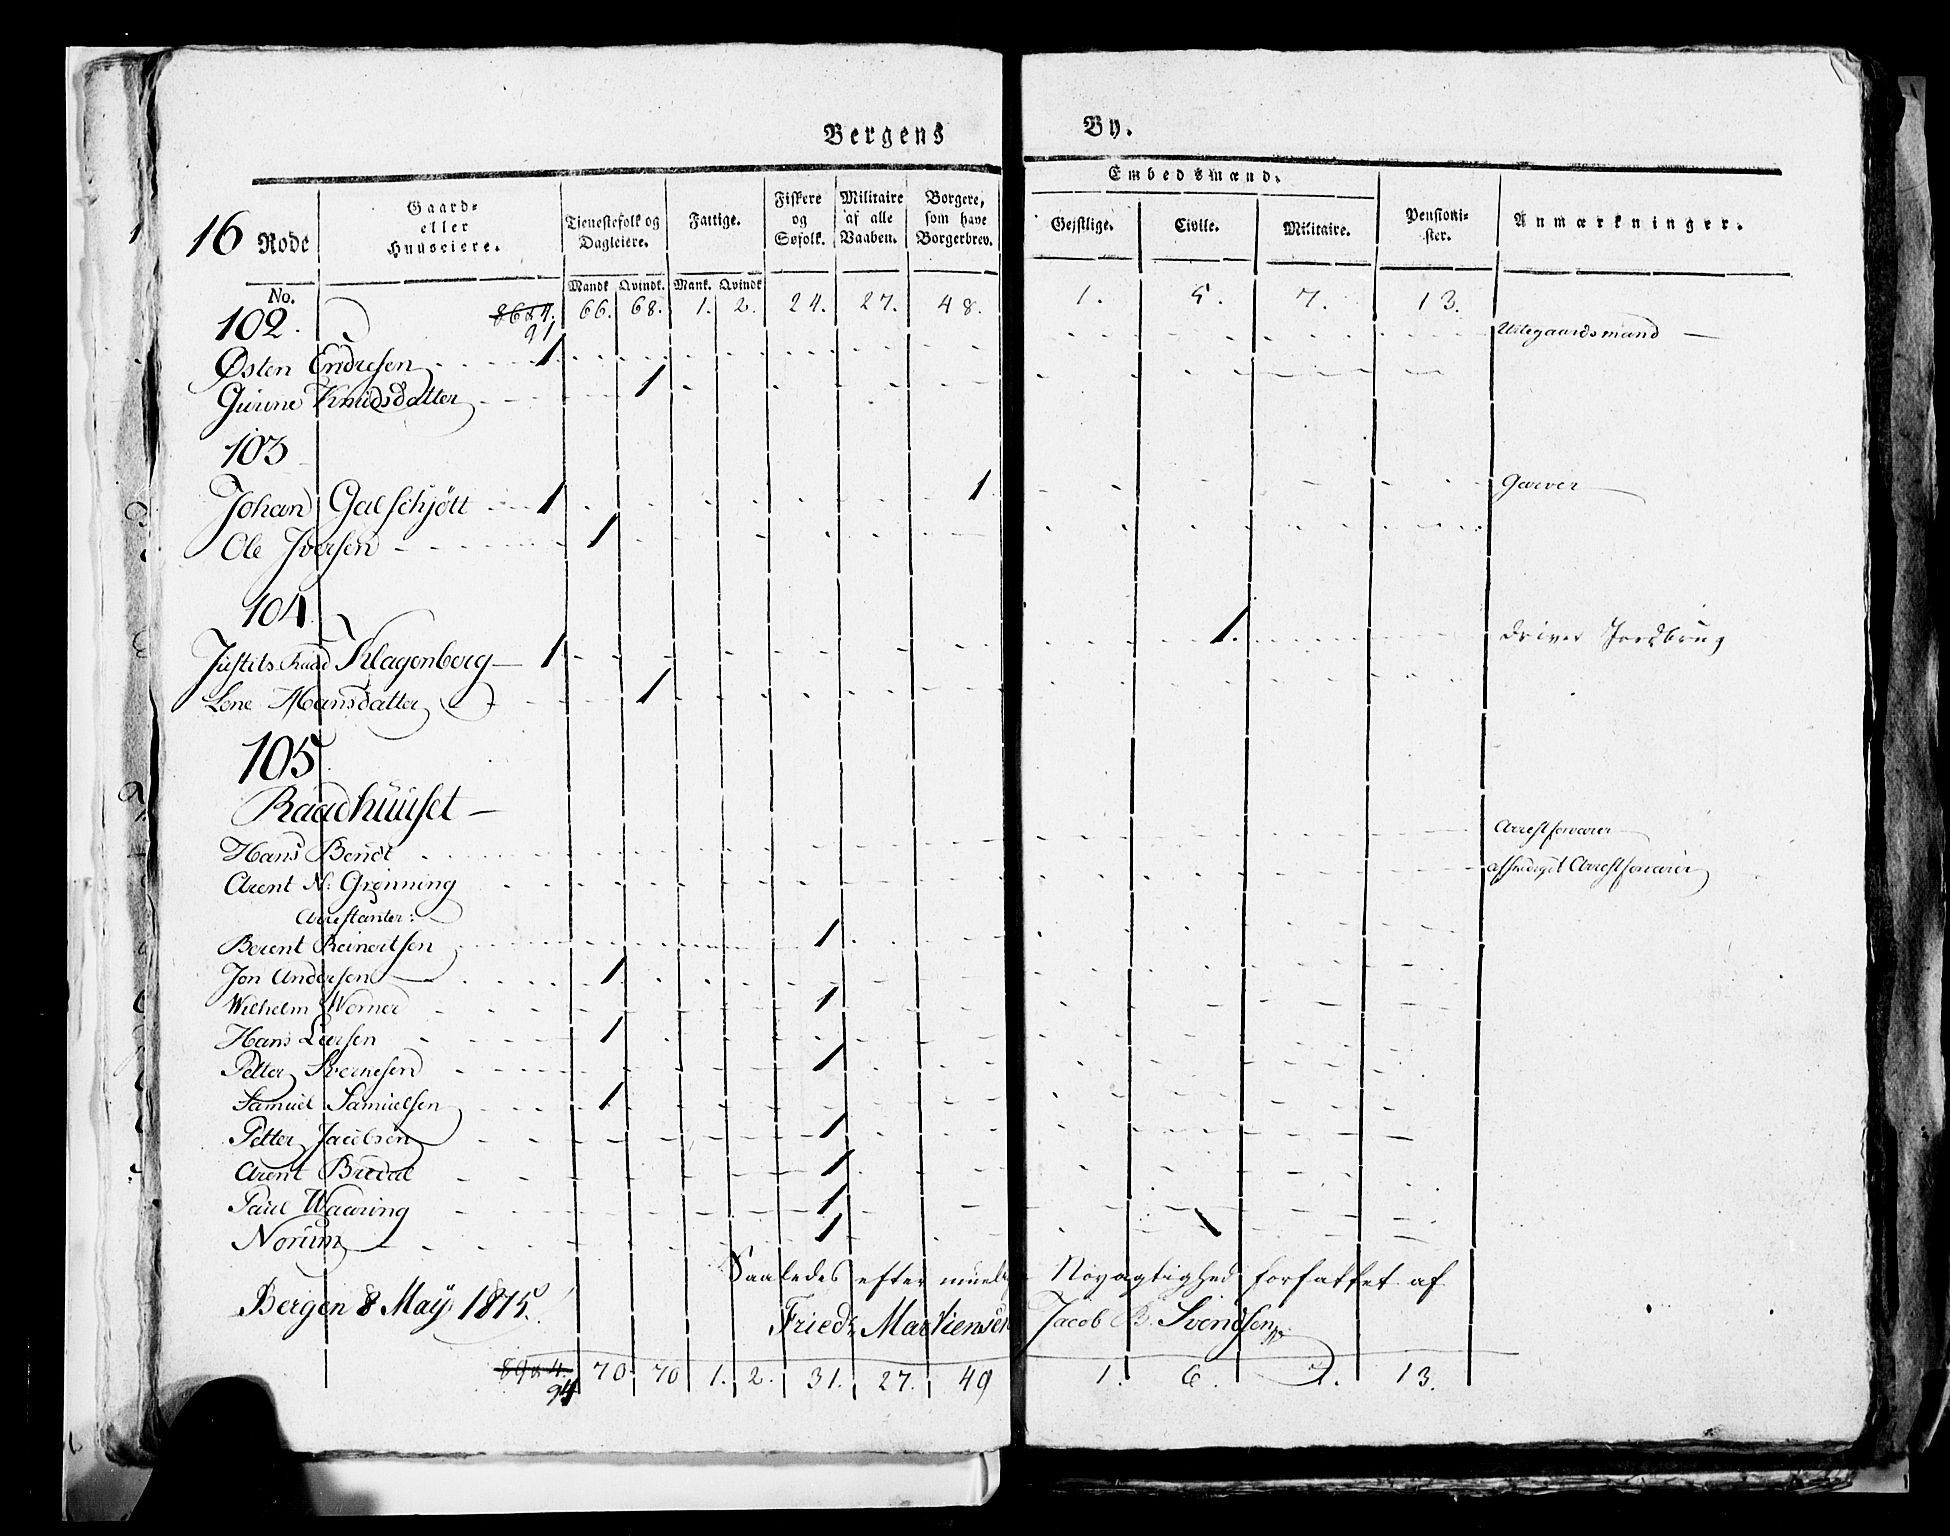 Bergens By.
16 Rode
Gaard-
eller
Huuseiere.
Tjenestefolk og
Dagleiere.
Fattige.
Fiskere
og
Søfolk.
Militaire
af alle
Vaaben.
Borgere,
som have
Borgerbrev.
Embedsmænd.
Gejstlige. Civile. Militaire.
Pensioni-
ster.
Anmærkninger.
No. Mandk. Qvindk. Mank. Qvindk.
102. 91 66. 68. 1. 2. 24. 27. 48. 1. 5. 7. 13.
Østen Endresen 1 Utlegaardsmand
Gurine Knudsdatter 1
103
Johan Galschjött 1 1 Garver
Ole Iversen 1
104
Justits Raad Klagenberg 1 1. driver Jordbrug
Lene Hansdatter 1
105
Raadhuuset
Hans Bendt Arrestforvarer
Arent N: Grønning afskediget Arrestforvarer
Arrestanter:
Berent Reinertsen 1
Jon Andersen 1
Wilhelm Werner 1
Hans Larsen 1
Petter Svernesen 1
Samuel Samuelsen 1
Petter Jacobsen 1
Arent Bredal 1
Paul Waaring 1
Norum 1 1
Saaledes efter Nøyagtighed forfattet af
Bergen 8 May 1815. Friedr Martiensen Jacob B. Svendsen
94 70. 70 1. 2. 31. 27. 49 1. 6. 7. 13.